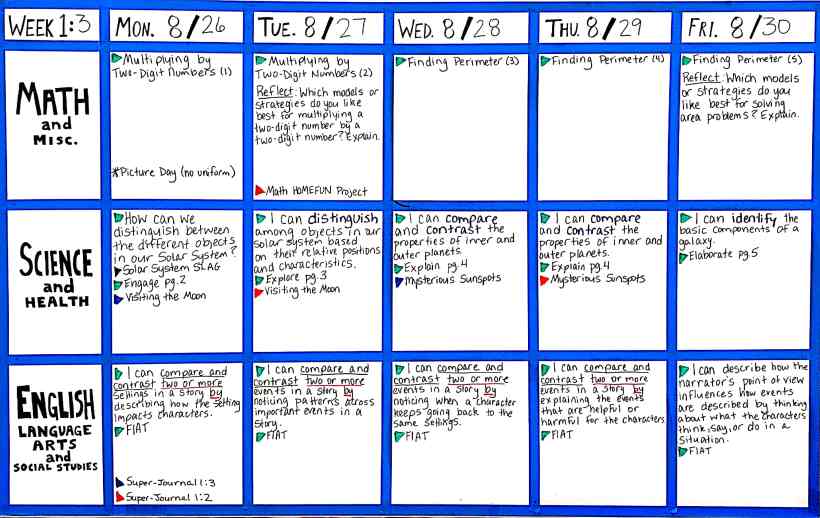 WEEK 1:3
MON. 8/26
TUE. 8/27
WED. 8/28
THU. 8/29
FRI. 8/30
MATH
and
MISC.
Multiplying by
Two-Digit Numbers (1)
*Picture Day (no uniform)
Multiplying by
Two-Digit Numbers (2)
Reflect: Which models or
strategies do you like
best for multiplying a
two-digit number by a
two-digit number? Explain.
Math HOMEFUN Project
Finding Perimeter (3)
Finding Perimeter (4)
Finding Perimeter (5)
Reflect: Which models
or strategies do you
like best for solving
area problems? Explain.
SCIENCE
and
HEALTH
How can we
distinguish between
the different objects
in our Solar System?
Solar System SLAG
Engage pg.2
Visiting the Moon
I can distinguish
among objects in our
solar system based
on their relative positions
and characteristics.
Explore pg.3
Visiting the Moon
I can compare
and contrast the
properties of inner and
outer planets.
Explain pg.4
Mysterious Sunspots
I can compare
and contrast the
properties of inner and
outer planets.
Explain pg.4
Mysterious Sunspots
I can identify the
basic components of a
galaxy.
Elaborate pg.5
ENGLISH
LANGUAGE
ARTS
and
SOCIAL STUDIES
I can compare and
contrast two or more
settings in a story by
describing how the setting
impacts characters.
FIAT
Super-Journal 1:3
Super-Journal 1:2
I can compare and
contrast two or more
events in a story by
noticing patterns across
important events in a
story.
FIAT
I can compare and
contrast two or more
events in a story by
noticing when a character
keeps going back to the
same settings.
FIAT
I can compare and
contrast two or more
events in a story by
explaining the events
that are helpful or
harmful for the characters
FIAT
I can describe how the
narrator's point of view
influences how events
are described by thinking
about what the characters
think, say, or do in a
situation.
FIAT